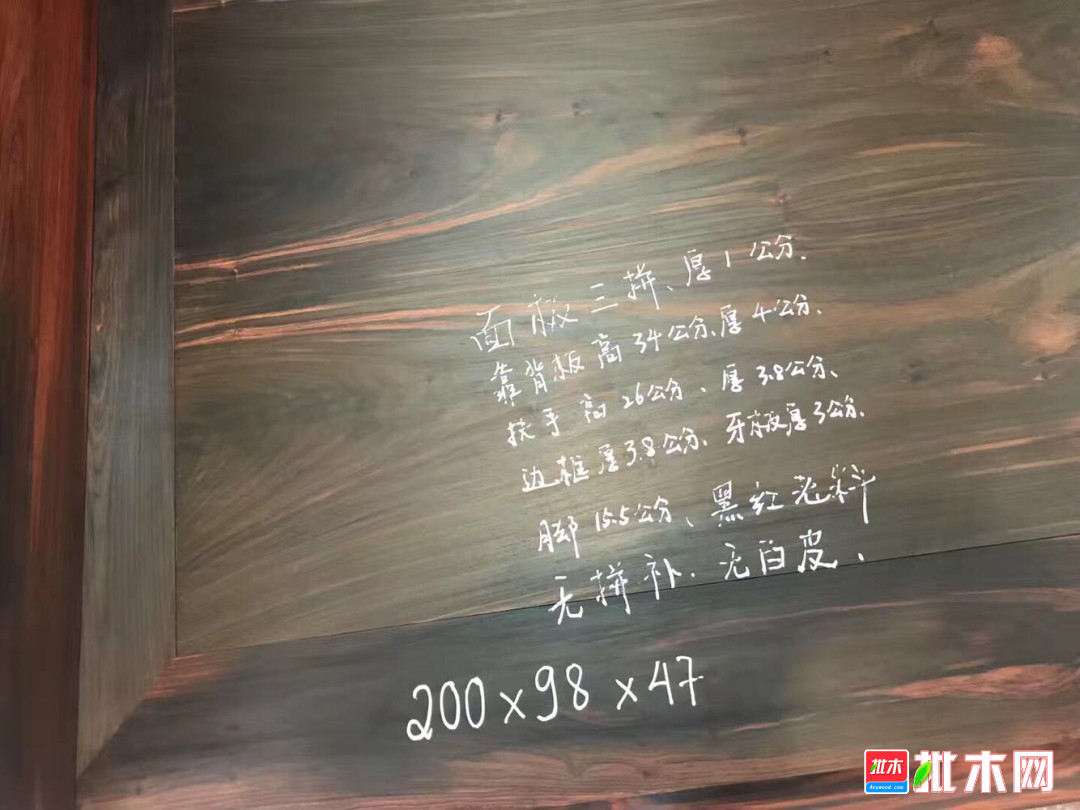 面板三拼、厚1公分.
靠背板高34公分、厚4公分、
扶手高26公分、厚3.8公分、
边框厚3.8公分、牙板厚3公分.
脚15.5公分、黑红老料
无拼补、无白皮.
200×98×47
批木
Anywood.com
批木网